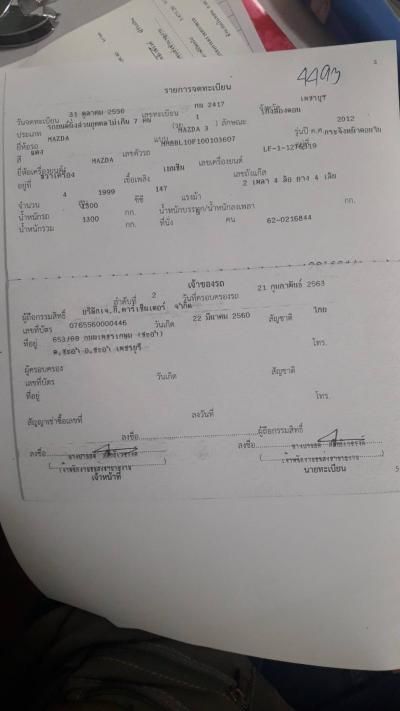 4493
รายการจดทะเบียน
วันจดทะเบียน 31 ตุลาคม 2556 เลขทะเบียน กท 2417 เพชรบุรี
ประเภท รถยนต์นั่งส่วนบุคคลไม่เกิน 7 คน (รย. 1 ) ลักษณะ เก๋งสองตอน
ยี่ห้อรถ MAZDA แบบ MAZDA 3 รุ่นปี ค.ศ. 2012
สี แดง เลขตัวรถ MM8BL10F100103607 กระจังหน้าคอหวัง
ยี่ห้อเครื่องยนต์ MAZDA เลขเครื่องยนต์ LF-1-1276319
อยู่ที่ ขวาเครื่อง เชื้อเพลิง เบนซิน เลขถังแก๊ส
จำนวน 4 สูบ 1999 ซีซี 147 แรงม้า 2 เพลา 4 ล้อ ยาง 4 เส้น
น้ำหนักรถ 1300 กก. น้ำหนักบรรทุก/น้ำหนักลงเพลา กก.
น้ำหนักรวม 1300 กก. ที่นั่ง คน 62-0216844
เจ้าของรถ
ลำดับที่ 2 วันที่ครอบครองรถ 21 กุมภาพันธ์ 2563
ผู้ถือกรรมสิทธิ์ บริษัทเจ.ก.คาร์เซ็นเตอร์ จำกัด
เลขที่บัตร 0765560000446 วันเกิด 22 มีนาคม 2560 สัญชาติ ไทย
ที่อยู่ 653/69 ถนนเพชรเกษม (ชะอำ)
ต.ชะอำ อ.ชะอำ เพชรบุรี โทร.
ผู้ครอบครอง
เลขที่บัตร วันเกิด สัญชาติ
ที่อยู่ โทร.
สัญญาเช่าซื้อเลขที่ ลงวันที่
ลงชื่อ ผู้ถือกรรมสิทธิ์
ลงชื่อ ลงชื่อ
เจ้าหน้าที่ นายทะเบียน